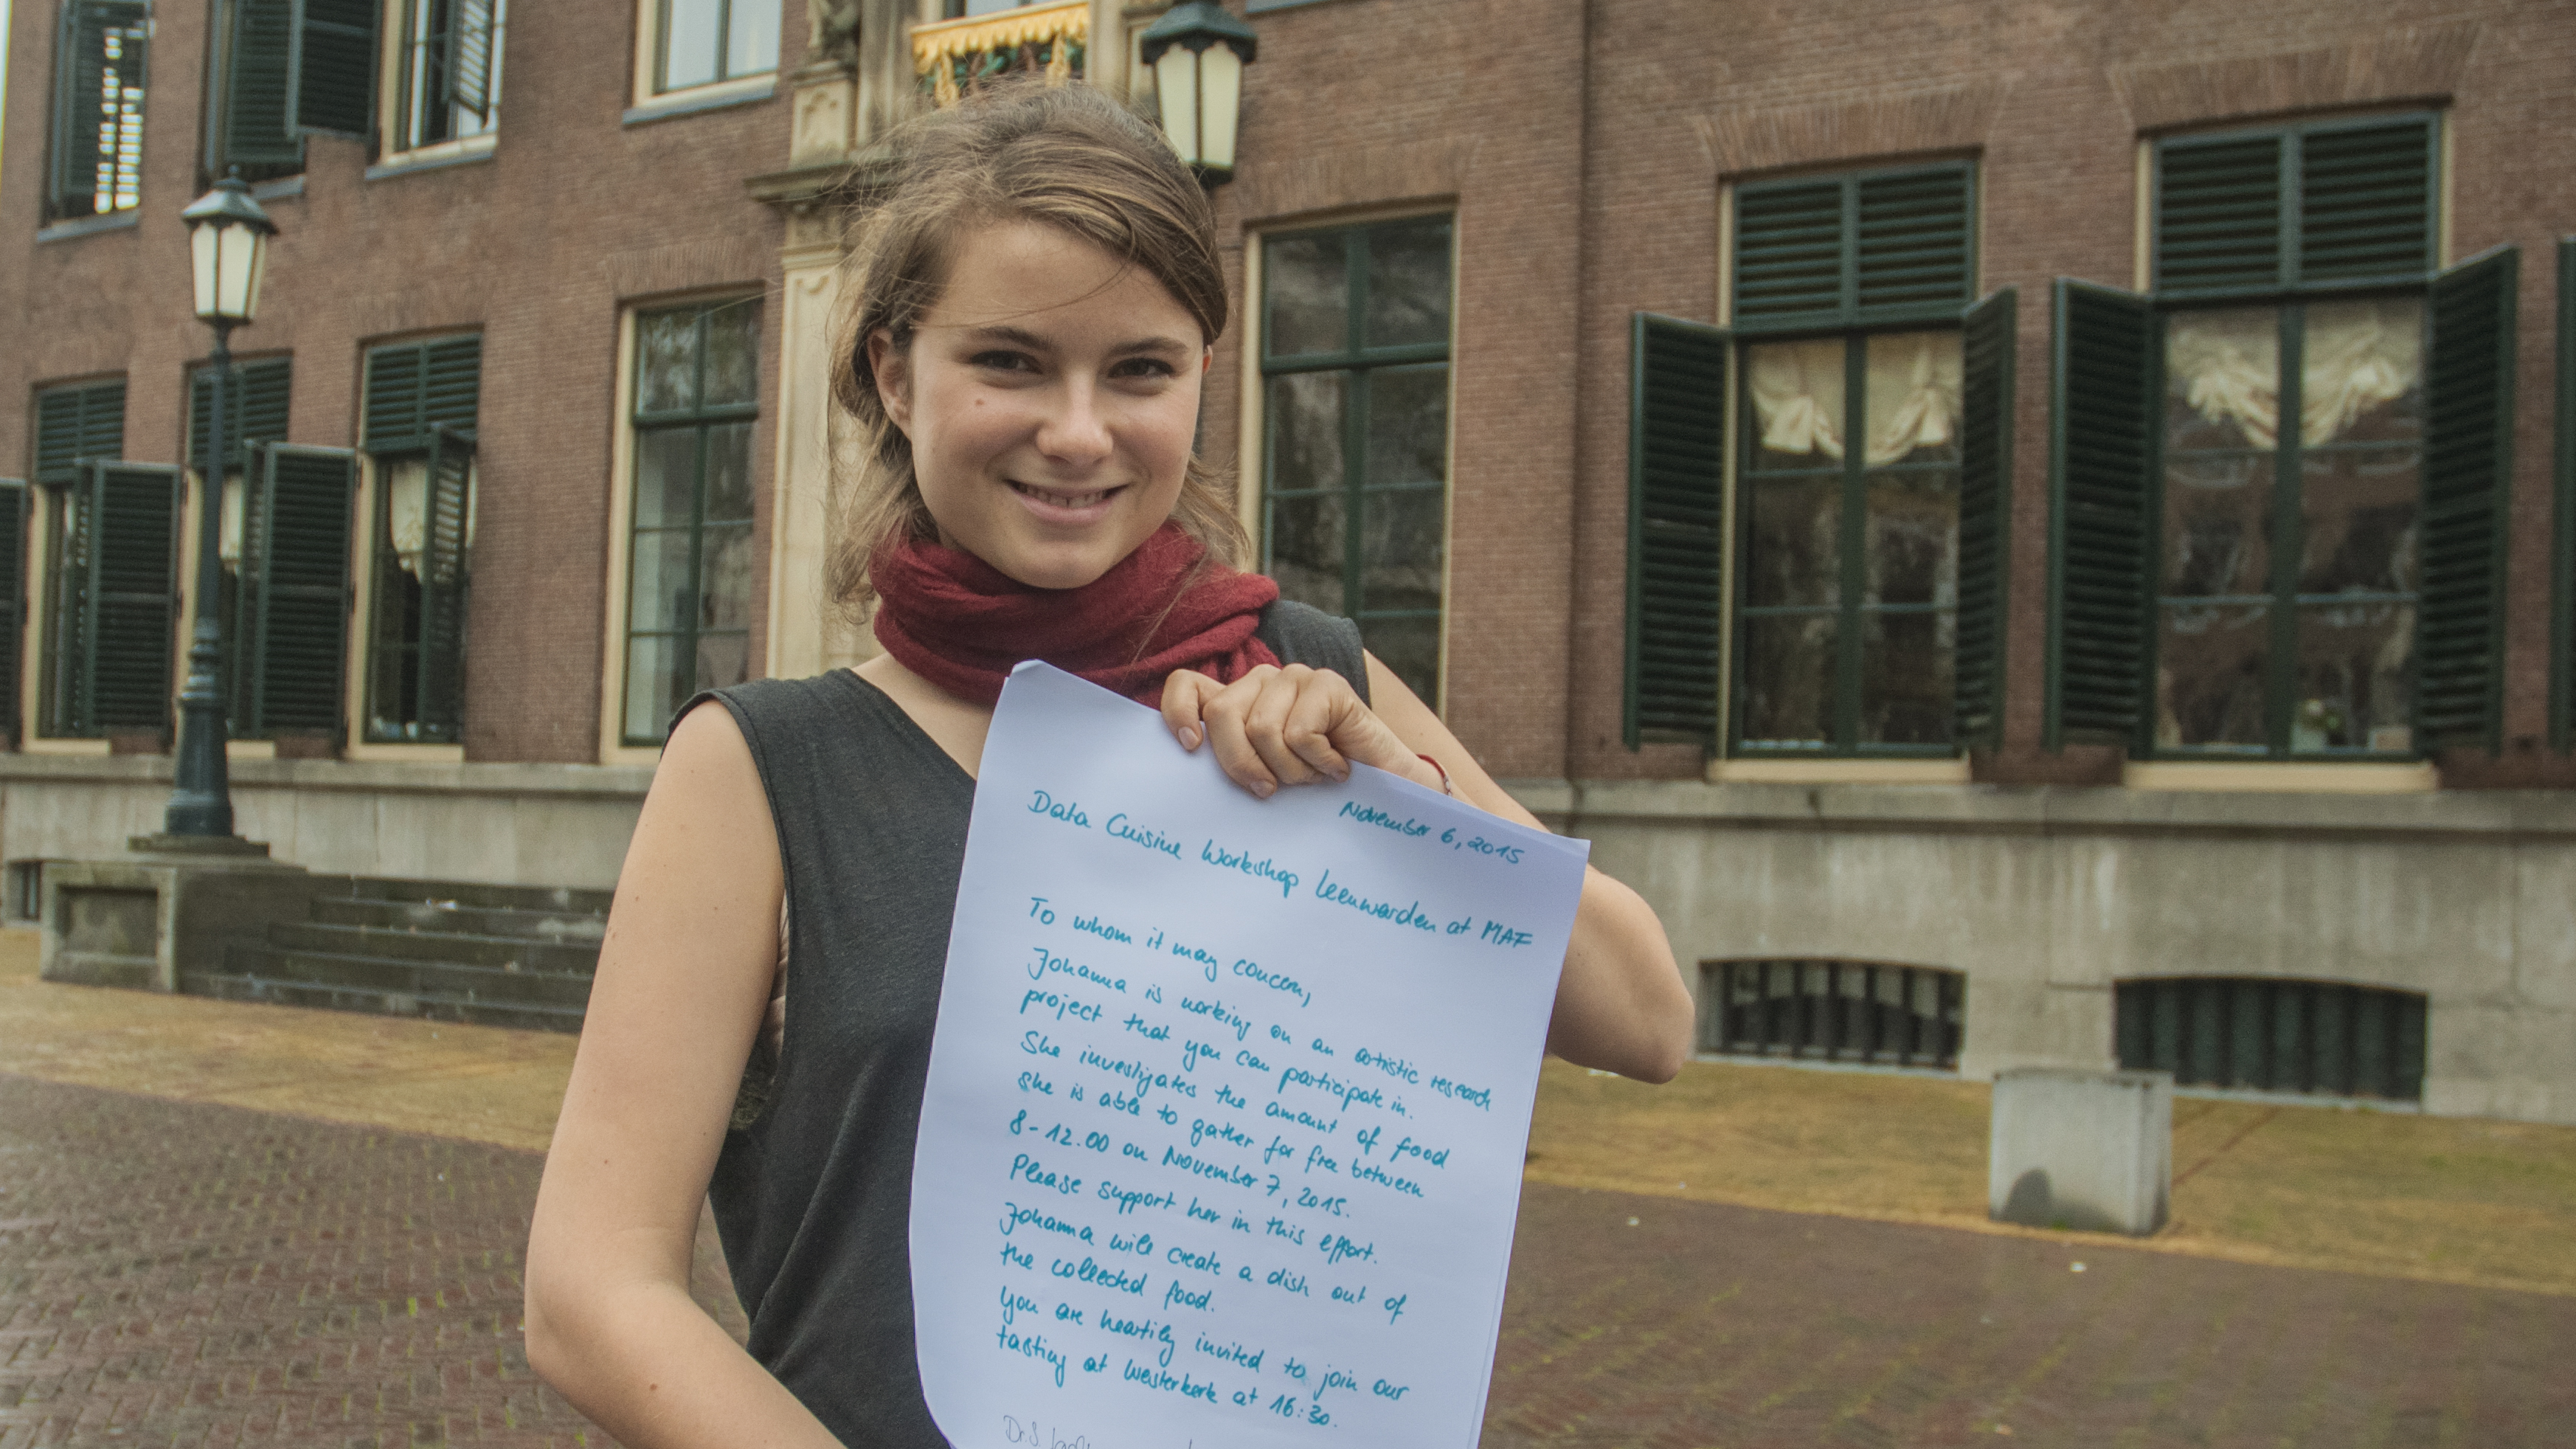 November 6, 2015
Data Cuisine Workshop Leeuwarden at MAF
To whom it may concern,
Johanna is working on an artistic research
project that you can participate in.
She investigates the amount of food
she is able to gather for free between
8-12.00 on November 7, 2015.
Please support her in this effort.
Johanna will create a dish out of
the collected food.
You are heartily invited to join our
tasting at Westerkerk at 16:30.
Dr. S.